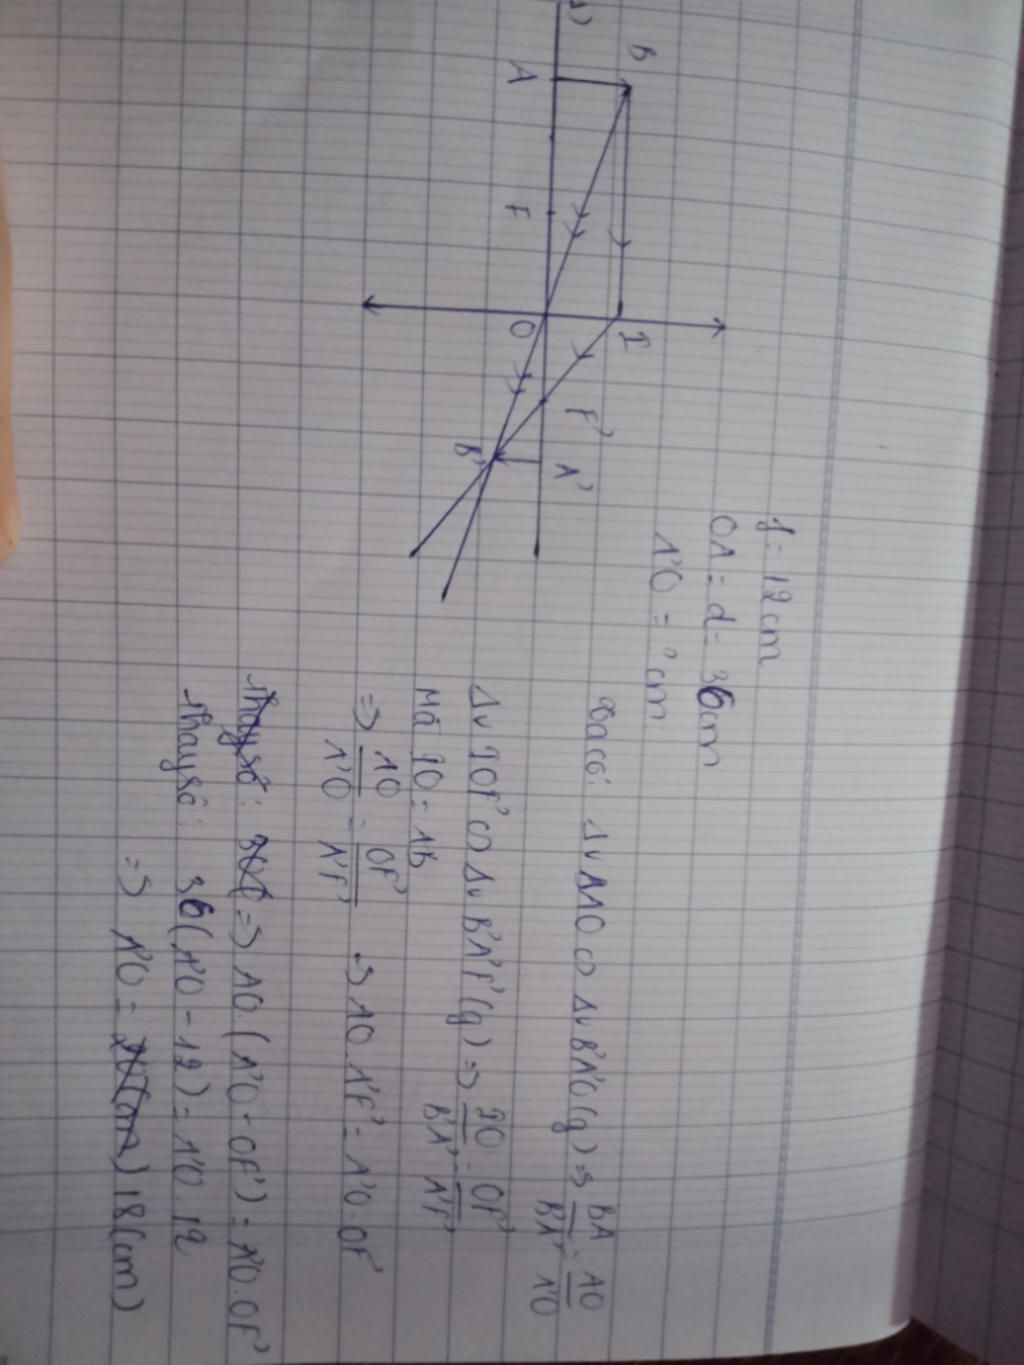 a)
B
I
A
F
O
F'
A'
B'
f = 12cm
OA = d = 36cm
A'O = ? cm
Ta có: Δv BAO ∽ Δv B'A'O (g) => BA/B'A' = AO/A'O
Δv IOF' ∽ Δv B'A'F' (g) => IO/B'A' = OF'/A'F'
Mà IO = AB
=> AO/A'O = OF'/A'F' => AO.A'F' = A'O.OF'
=> AO.(A'O - OF') = A'O.OF'
Thay số: 36(A'O - 12) = A'O.12
=> A'O = 18(cm)